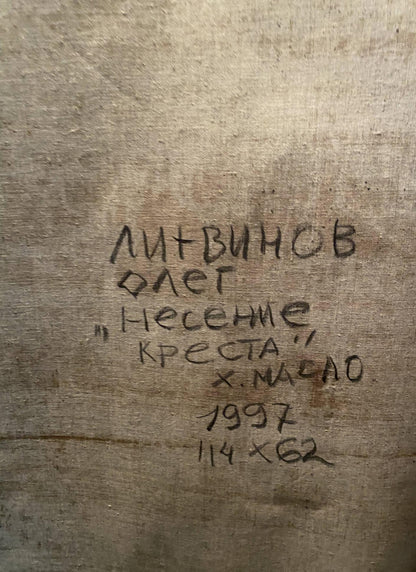 ЛИТВИНОВ
ОЛЕГ
„Несение
креста"
х. масло
1997
114 х 62